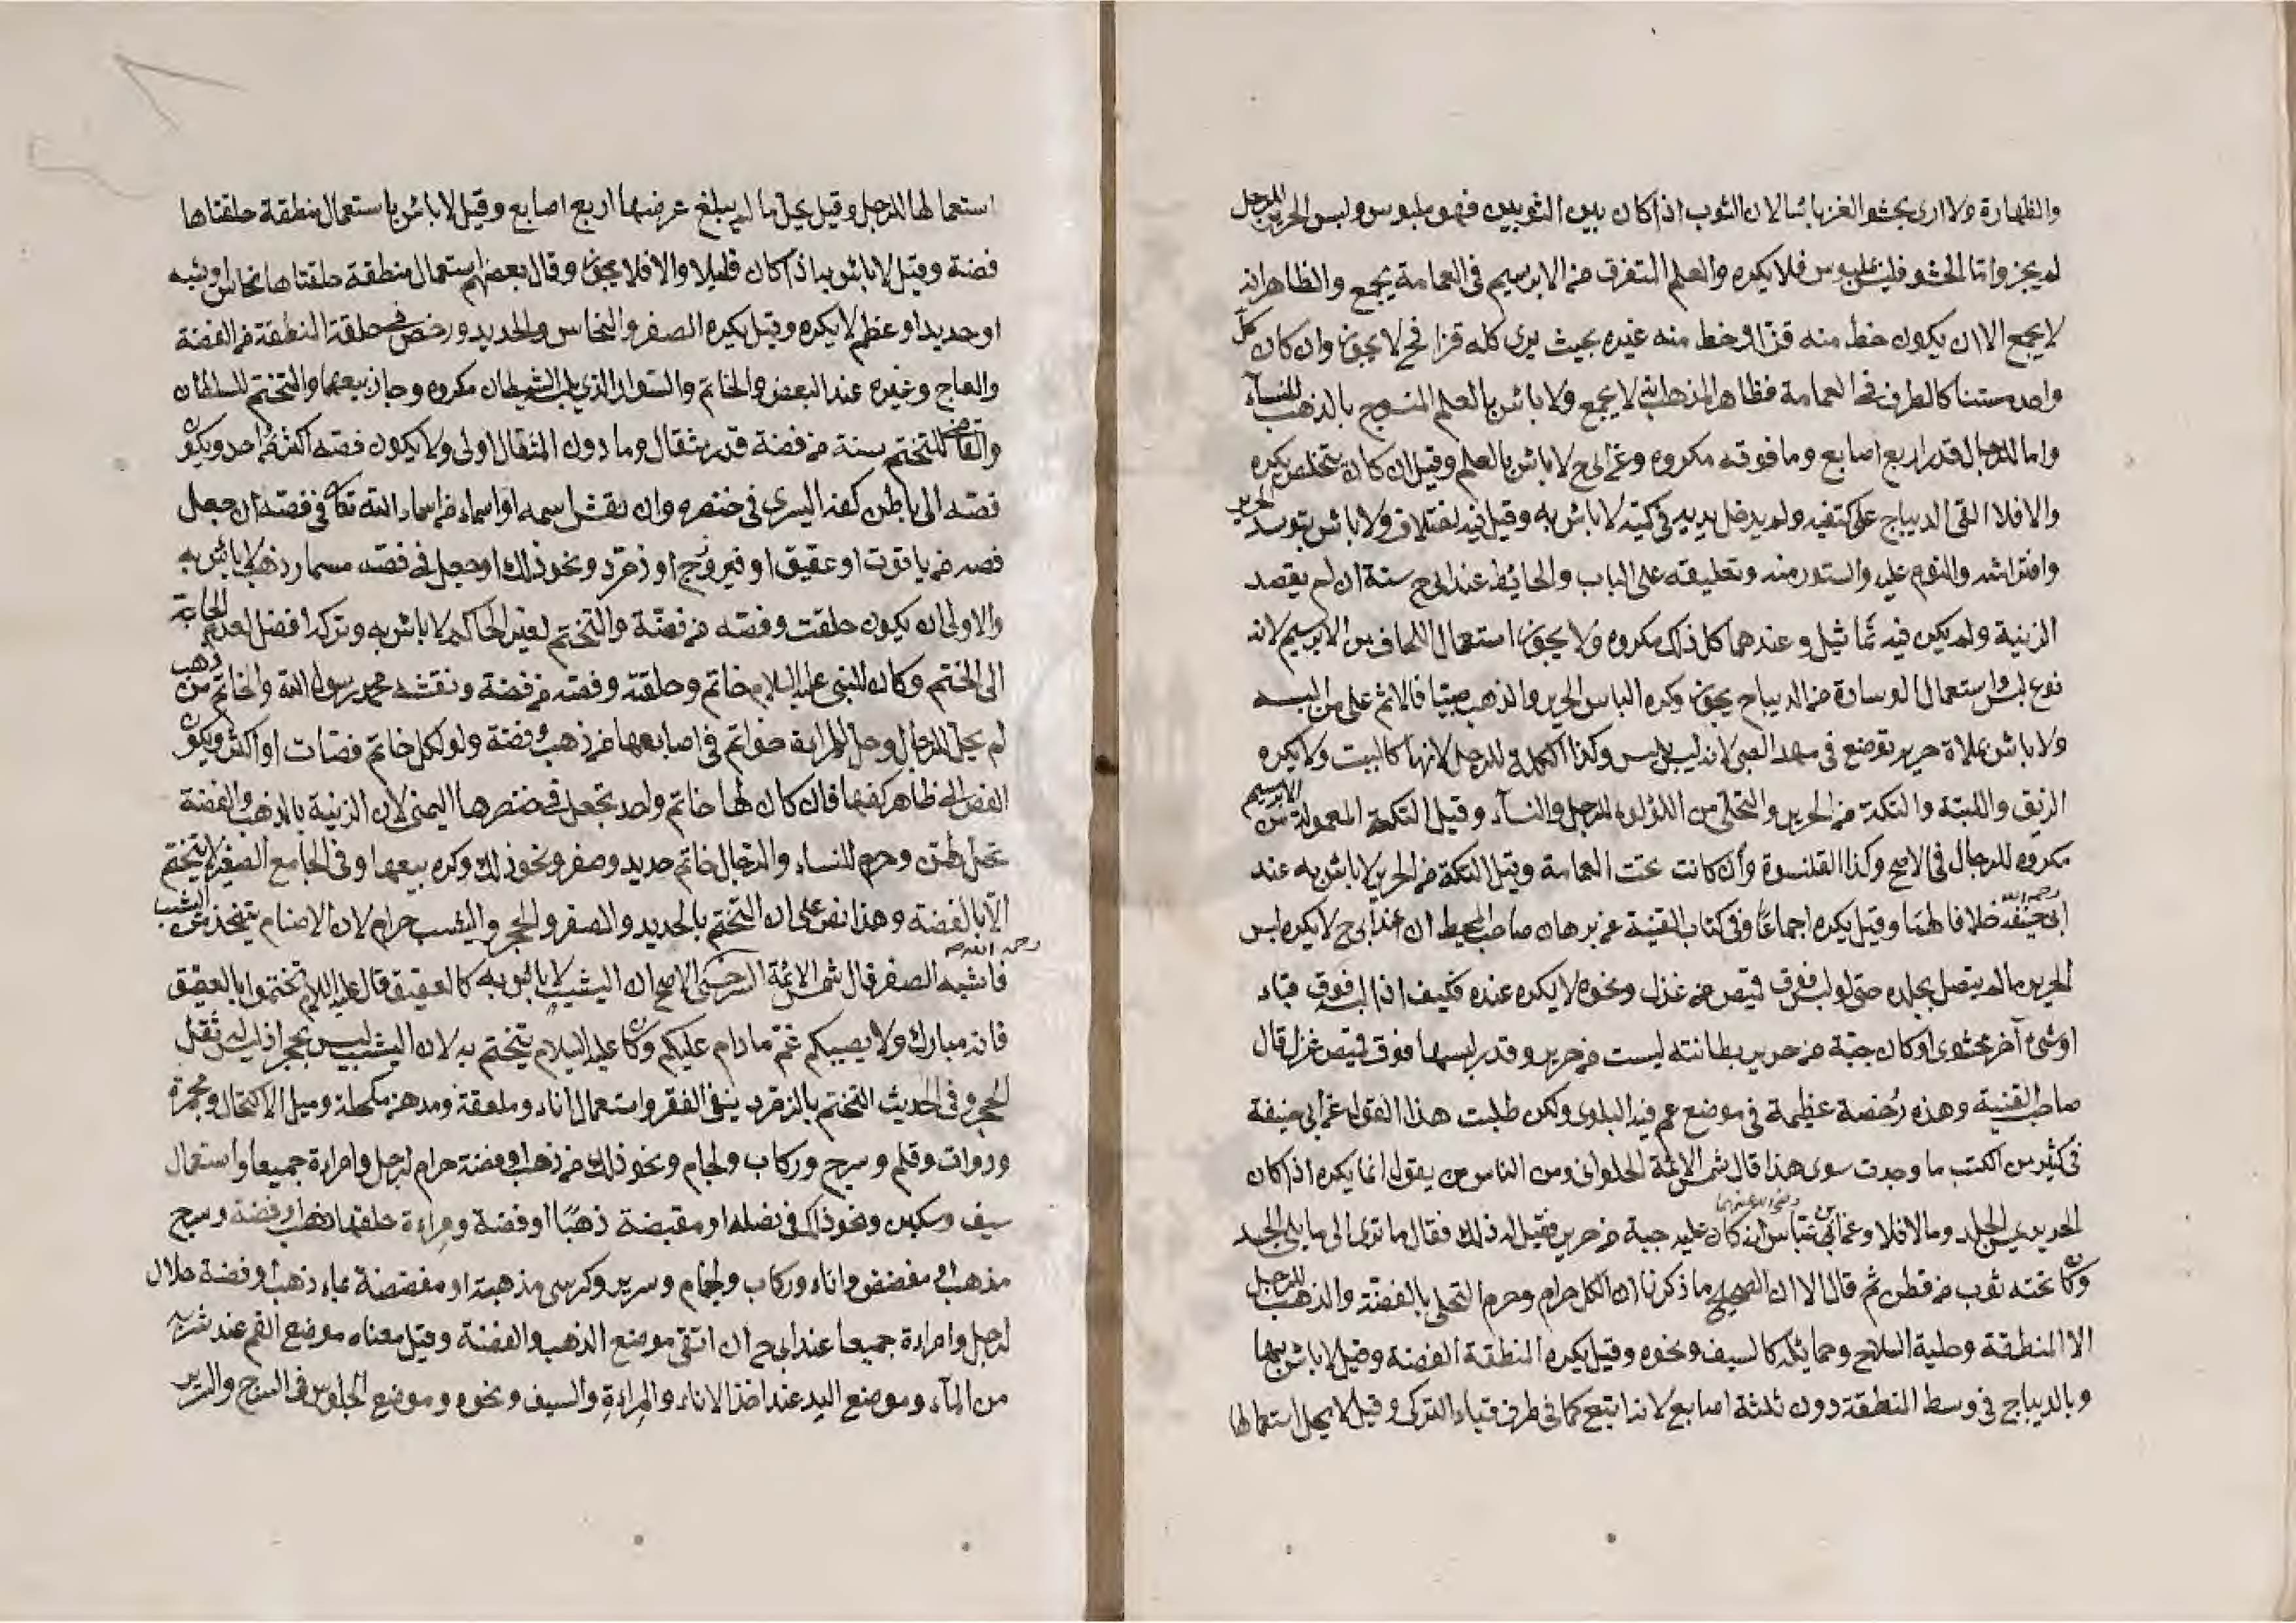 والظهارة ولا ارى بحشو القز بائسا لان الثوب اذا كان بين الثوبين فهو ملبوس ولبس الحرير للرجل
لم يجز واما الحشو فليس بملبوس فلا يكره والعلم المتفرق من الابريسم في العمامة يجمع والظاهر انه
لا يجمع الا ان يكون خط منه قزا وخط منه غيره بحيث يرى كله قزا فح لا يجوز وان كان كل
واحد مستبنا كالطرف في العمامة فظاهر المذهب انه لا يجمع ولا باس بالعلم المنسوج بالذهب للنساء
واما للرجال قدر اربع اصابع وما فوقه مكروه وعن ابى ح لا باس بالعلم وقيل ان كان يتخلص يكره
والا فلا القى الديباج على كتفيه ولم يدخل يديه في كميه لا باس به وقيل فيه اختلاف ولا باس بتوسد الحرير
وافتراشه والنوم عليه والستور منه وتعليقه على الباب والحائط عند ابى ح سنة ان لم يقصد
الزينة ولم يكن فيه تماثيل وعندهما كل ذلك مكروه ولا يجوز استعمال اللحاف من الابريسم لانه
نوع لبس واستعمال الوسادة من الديباج يجوز وكره الباس الحرير والذهب صبيا فالاثم على من البسه
ولا باس بملاة حرير توضع في مهد الصبى لانه ليس بلبس وكذا الكلة للرجل لانها كالبيت ولا يكره
الزيق واللبنة والتكة من الحرير والتحلى من اللؤلؤ للرجل والنسآء وقيل التكة المعمولة من الابريسم
مكروه للرجال في الاصح وكذا القلنسوة وان كانت تحت العمامة وقيل التكة من الحرير لا باس به عند
ابى حنيفة رحمه الله خلافا لهما وقيل يكره اجماعا وفى كتاب القنية عن برهان صاحب المحيط ان عند ابى ح لا يكره لبس
الحرير ما لم يتصل بجلده حتى لو لبس فوق قميص من غزل ونحوه لا يكره عنده فكيف اذا لبسه فوق قباء
او شئ آخر محشوا او كان جبة من حرير بطانته ليست من حرير وقد لبسها فوق قميص غزل قال
صاحب القنية وهذه رخصة عظيمة في موضع عم فيه البلوى ولكن طلبت هذا القول عن ابى حنيفة
في كثير من الكتب ما وجدت سوى هذا قال شمس الائمة الحلوانى ومن الناس من يقول انما يكره اذا كان
الحرير يمس الجلد وما لا فلا وعن ابن عباس رضى الله عنهما انه كان عليه جبة من حرير فقيل له ذلك فقال ما ترى الى ما يلى الجسد
وكان تحته ثوب من قطن ثم قال الا ان الصحيح ما ذكرنا ان الكل حرام وحرم التحلى بالفضة والذهب للرجل
الا المنطقة وحلية السلاح وحمائله كالسيف ونحوه وقيل يكره المنطقة الفضة وقيل لا باس بها
وبالديباج في وسط المنطقة دون ثلثة اصابع لانه تبع كما في طرف قباء التركى وقيل لا يحل استعمالها
استعمالها للرجل وقيل يحل ما لم يبلغ عرضها اربع اصابع وقيل لا باس باستعمال منطقة حلقتاها
فضة وقيل لا باس بها اذا كان قليلا والا فلا يجوز وقال بعضهم استعمال منطقة حلقتاها نحاس او شبه
او حديد او عظم لا يكره وقيل يكره الصفر والنحاس والحديد ورخص في حلقة المنطقة من الفضة
والعاج وغيره عند البعض والخاتم والسوار الذي يلبس الشيطان مكروه وجاز بيعها والتختم للسلطان
والقاضى التختم سنة من فضة قدر مثقال وما دون المثقال اولى ولا يكون فصه اكثر من احد ويكون
فصه الى باطن كفه اليسرى في خنصره وان نقش اسمه او اسماء من اسماء الله تعالى في فصه ان جعل
فصه من ياقوت او عقيق او فيروزج او زمرد ونحو ذلك او جعل في فصه مسمار ذهب لا باس به
والاولى ان يكون حلقته وفصه من فضة والتختم لغير الحاكم لا باس به وتركه افضل لعدم الحاجة
الى الختم وكان للنبى عليه السلام خاتم وحلقته وفصه من فضة ونقشه محمد رسول الله والخاتم من ذهب
لم يحل للرجال وحل للمراة خواتم في اصابعها من ذهب وفضة ولو لكل خاتم فصات او اكثر ويكون
الفص الى ظاهر كفها فان كان لها خاتم واحد تجعل في خنصرها اليمنى لان الزينة بالذهب والفضة
تحل لهن وحرم للنساء والرجال خاتم حديد وصفر ونحو ذلك وكره بيعها وفى الجامع الصغير لا يتختم
الا بالفضة وهذا نص على ان التختم بالحديد والصفر والحجر واليشب حرام لان الاصنام يتخذ من اليشب
فاشبه الصفر قال شمس الائمة السرخسى رحمه الله الاصح ان اليشب لا باس به كالعقيق قال عليه السلام تختموا بالعقيق
فانه مبارك ولا يصيبكم غم ما دام عليكم وكان عليه السلام يتختم به لان اليشب ليس بحجر اذ ليس له ثقل
الحجر وفى الحديث التختم بالزمرد ينفى الفقر واستعمال اناء وملعقة ومدهن ومكحلة وميل الاكتحال ومجمرة
ودوات وقلم وسرج وركاب ولجام ونحو ذلك من ذهب او فضة حرام لرجل وامراءة جميعا واستعمال
سيف وسكين ونحو ذلك في نصله او مقبضة ذهبا او فضة ومراءة حلقها ذهب او فضة وسرج
مذهب او مفضض واناء وركاب ولجام وسرير وكرسى مذهبة او مفضضة بماء ذهب او فضة حلال
لرجل وامراءة جميعا عند ابى ح ان اتقى موضع الذهب والفضة وقيل معناه موضع الفم عند شربه
من المآء وموضع اليد عند اخذ الاناء والمراءة والسيف ونحوه وموضع الجلوس في السرج والسرير